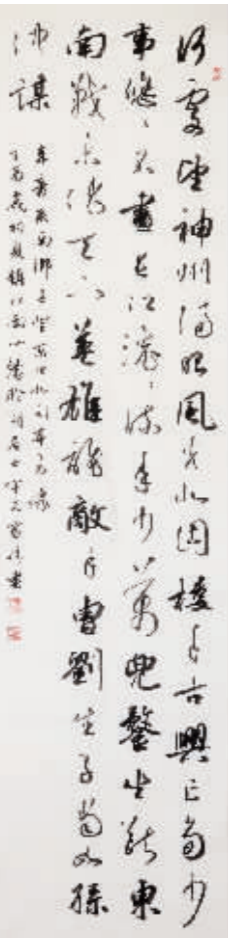 何處望神州滿眼風光北固樓千古興亡多少
事悠〻不盡長江滚〻流年少萬兜鍪坐斷東
南戰未休天下英雄誰敵手曹劉生子當如孫
仲謀
辛棄疾南鄉子登京口北固亭有懷